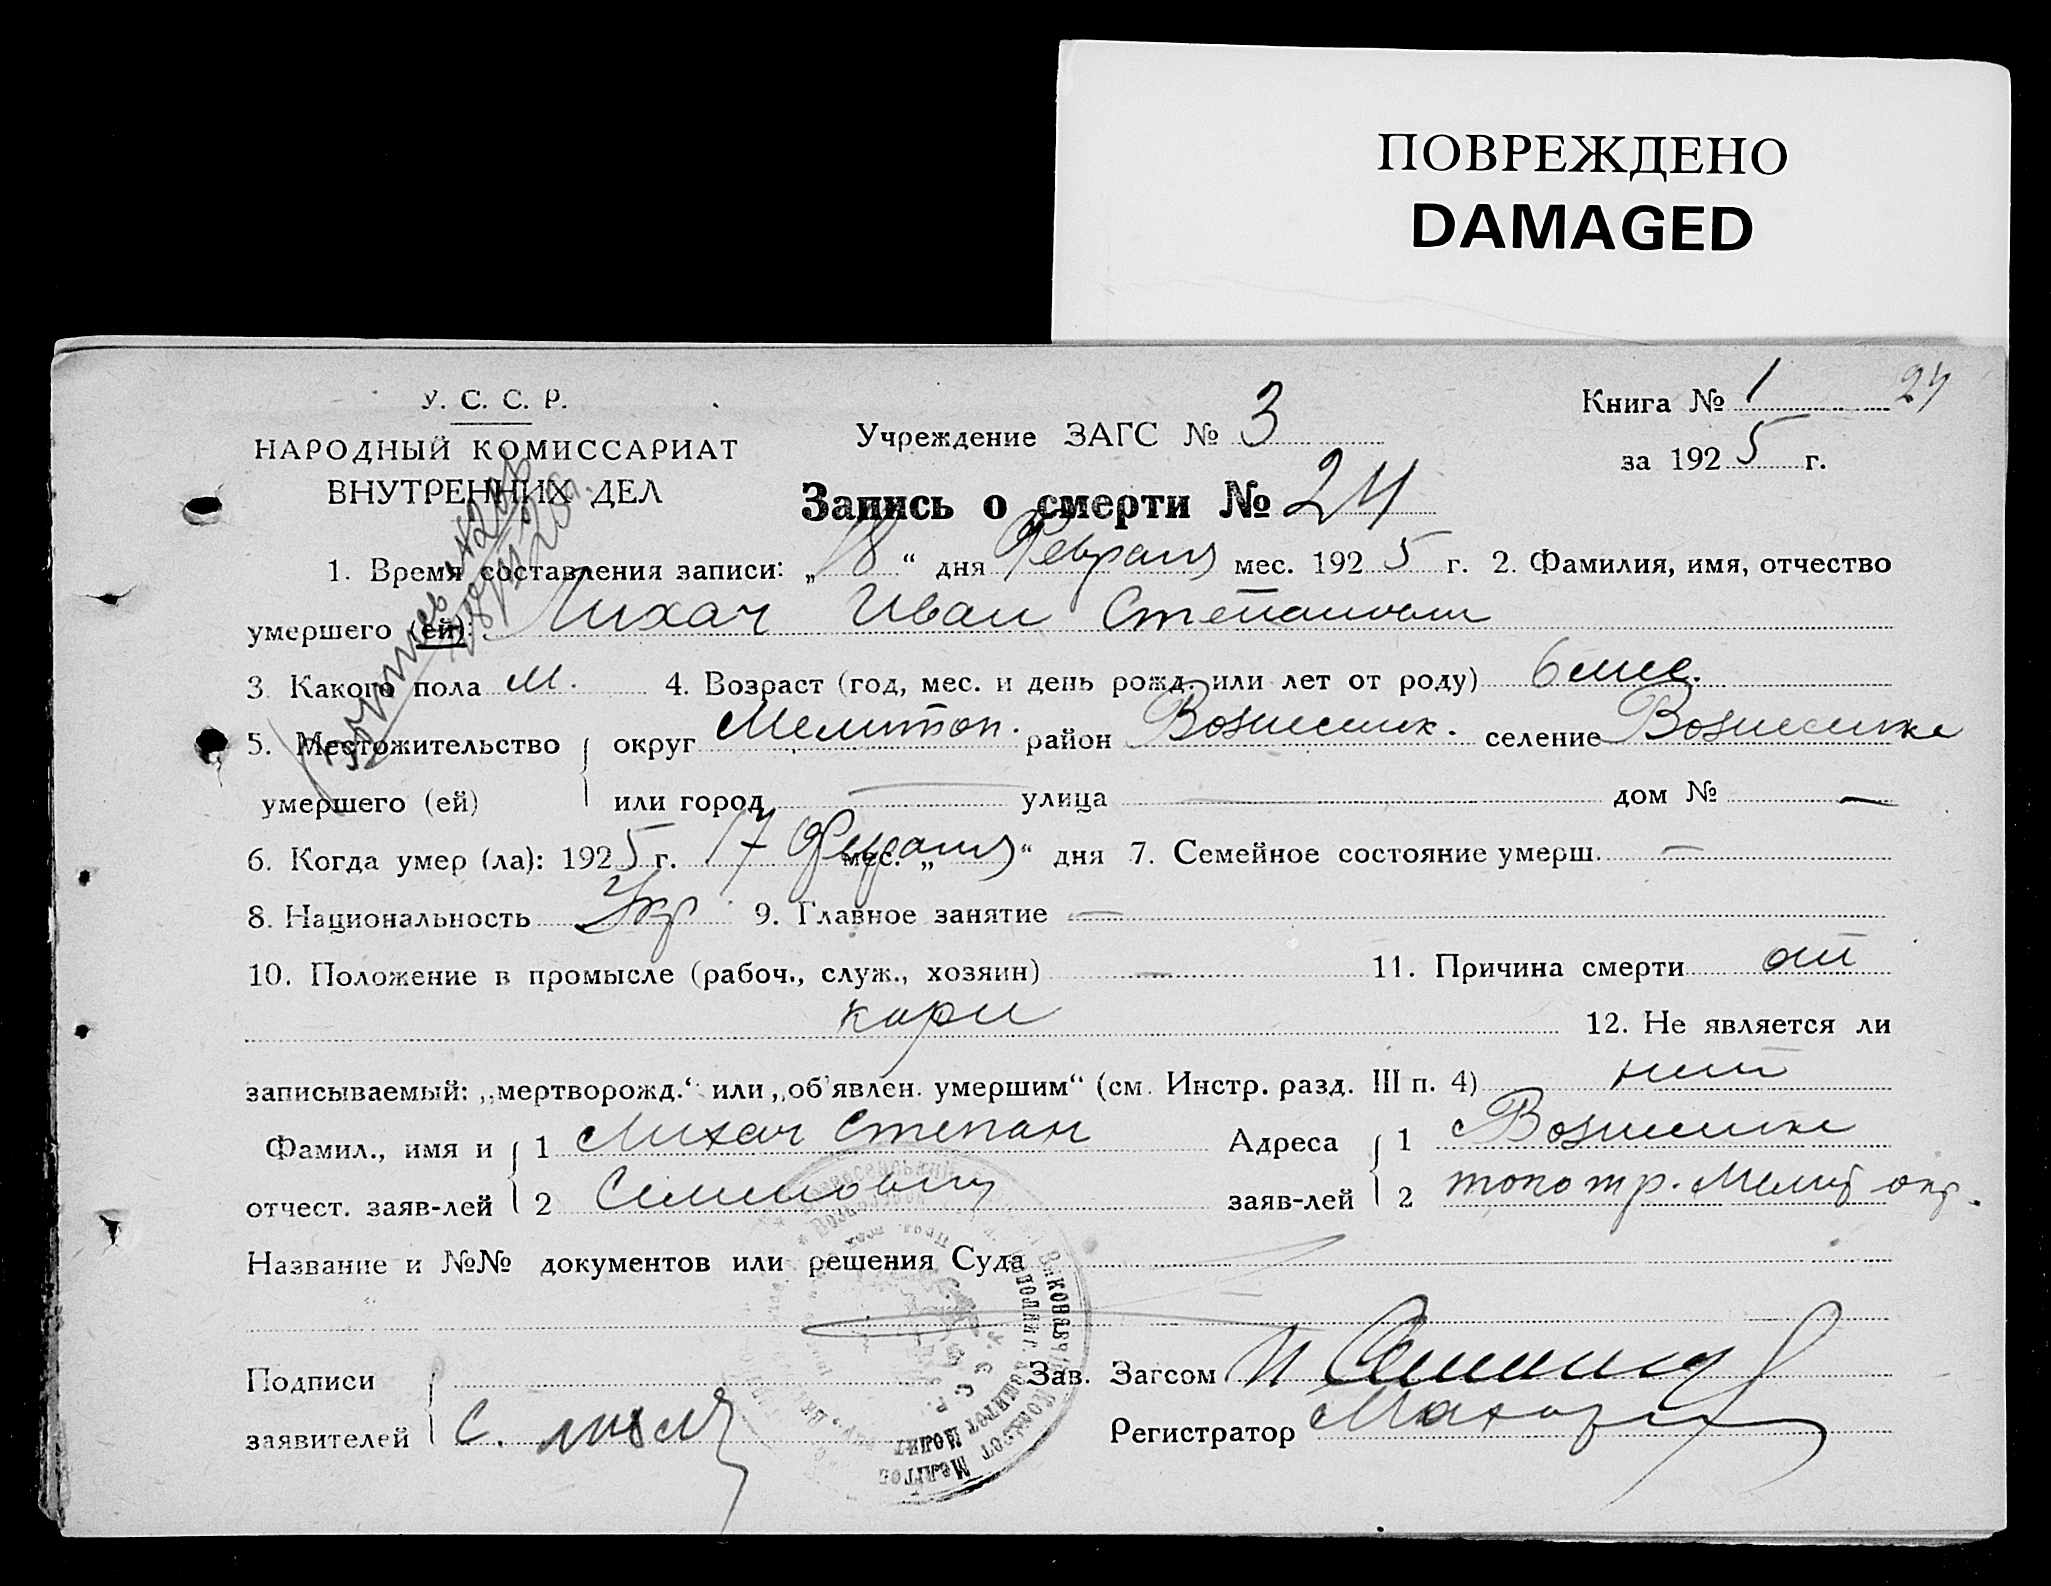 ПОВРЕЖДЕНО
DAMAGED
У. С. С. Р.
НАРОДНЫЙ КОМИССАРИАТ
ВНУТРЕННИХ ДЕЛ
Учреждение ЗАГС № 3
Книга № 1 24
за 1925 г.
Запись о смерти № 24
1. Время составления записи: „18“ дня Февраля мес. 1925 г. 2. Фамилия, имя, отчество
умершего (ей): Лихач Иван Степанович
3. Какого пола М. 4. Возраст (год, мес. и день рожд. или лет от роду) 6 мес.
5. Местожительство округ Мелитоп. район Вознесенск. селение Вознесенке
умершего (ей) или город — улица — дом № —
6. Когда умер (ла): 1925 г. 17 Февраля мес. „ “ дня 7. Семейное состояние умерш. —
8. Национальность Укр 9. Главное занятие —
10. Положение в промысле (рабоч., служ., хозяин) — 11. Причина смерти от
кори 12. Не является ли
записываемый: „мертворожд.“ или „об'явлен. умершим“ (см. Инстр. разд. III п. 4) нет
Фамил., имя и 1 Лихач Степан Адреса 1 Вознесенке
отчест. заяв-лей 2 Семенович заяв-лей 2 того тр. Мелит окр.
Название и №№ документов или решения Суда
Подписи Зав. Загсом
заявителей С. Регистратор